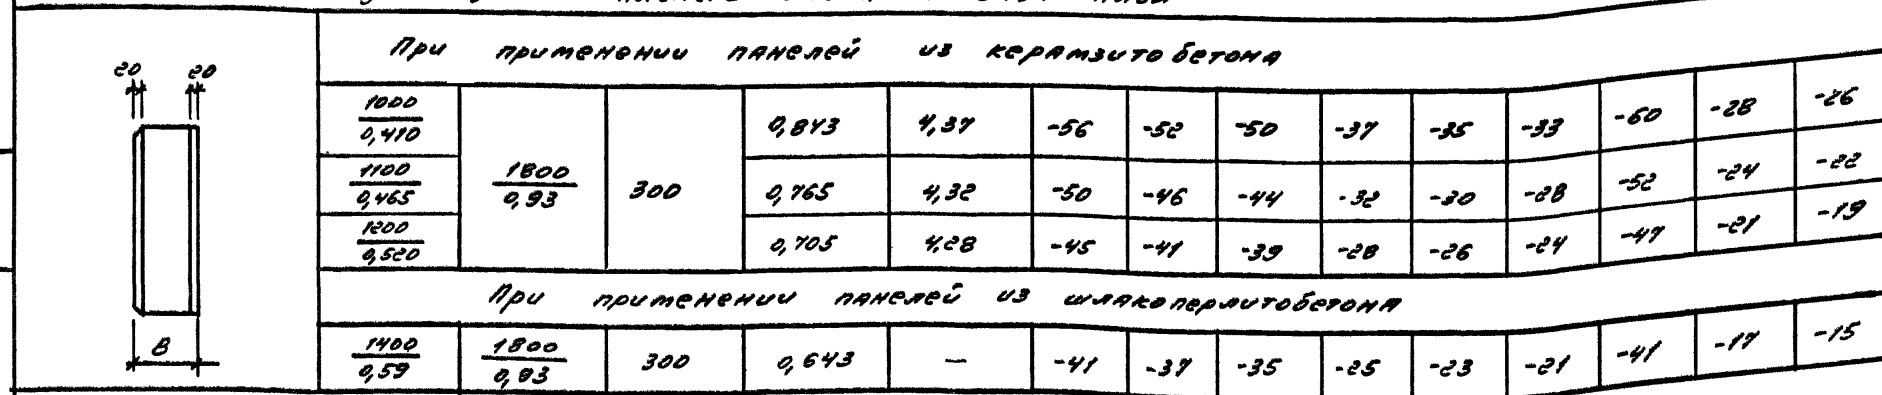 При применении панелей из керамзитобетона
20 20
1000 / 0,410 1800 / 0,93 300 0,843 4,37 -56 -52 -50 -37 -35 -33 -60 -28 -26
1100 / 0,465 0,765 4,32 -50 -46 -44 -32 -30 -28 -52 -24 -22
1200 / 0,520 0,705 4,28 -45 -41 -39 -28 -26 -24 -47 -21 -19
При применении панелей из шлакоперлитобетона
В
1400 / 0,59 1800 / 0,93 300 0,643 — -41 -37 -35 -25 -23 -21 -41 -17 -15